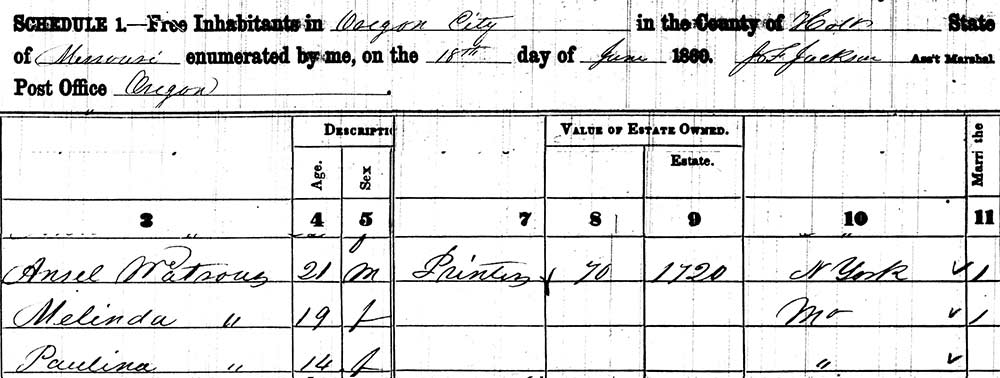 SCHEDULE 1.—Free Inhabitants in Oregon City in the County of Holt State
of Missouri enumerated by me, on the 18th day of June 1860. J F Jackson Ass't Marshal.
Post Office Oregon.
DESCRIPTIO VALUE OF ESTATE OWNED.
Age. Sex Estate. Marri the
3 4 5 7 8 9 10 11
Ansel Watrous 21 m Printer 70 1720 N York ✓ 1
Melinda " 19 f Mo ✓ 1
Paulina " 14 f " ✓